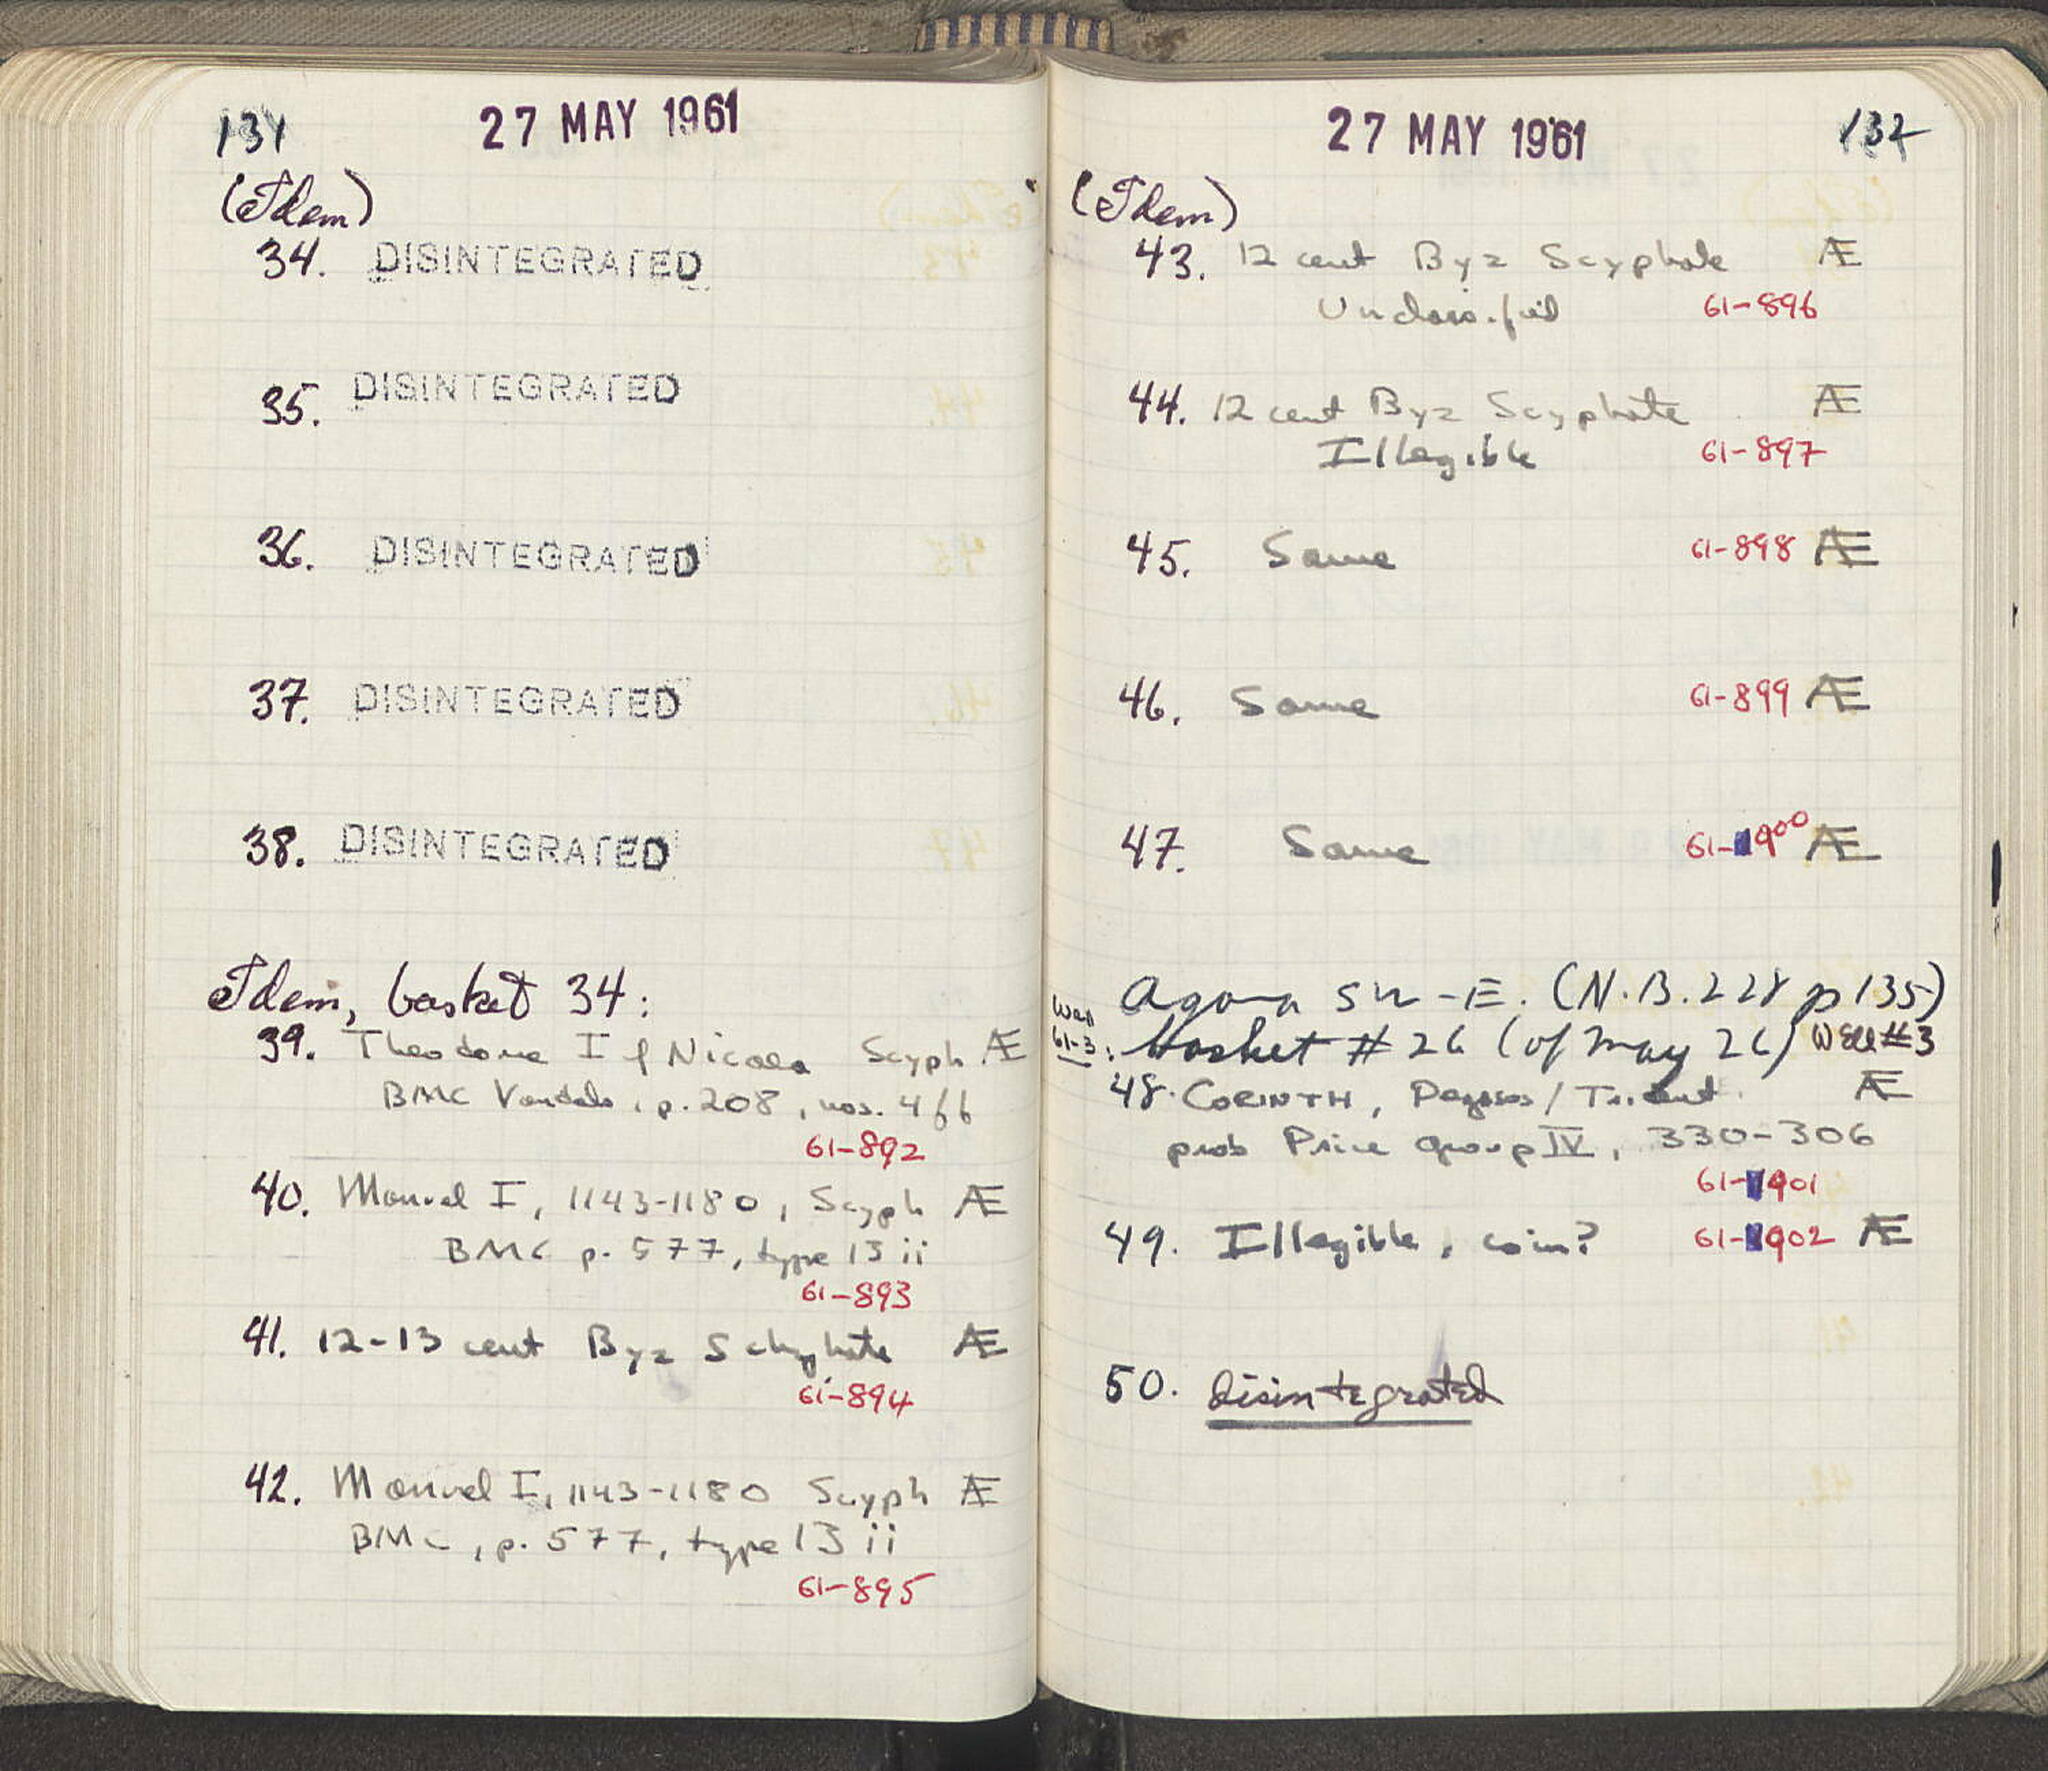 131
27 MAY 1961
(Idem)
34. DISINTEGRATED
35. DISINTEGRATED
36. DISINTEGRATED
37. DISINTEGRATED
38. DISINTEGRATED
Idem, basket 34:
39. Theodore I of Nicaea Scyph. Æ
BMC Vandals, p. 208, nos. 4 & 6
61-892
40. Manuel I, 1143-1180, Scyph Æ
BMC p. 577, type 13 ii
61-893
41. 12-13 cent Byz Schyphate Æ
61-894
42. Manuel I, 1143-1180 Scyph Æ
BMC, p. 577, type 13 ii
61-895
27 MAY 1961
132
(Idem)
43. 12 cent Byz Scyphate Æ
Unclassified 61-896
44. 12 cent Byz Scyphate Æ
Illegible 61-897
45. Same 61-898 Æ
46. Same 61-899 Æ
47. Same 61-900 Æ
Agora SW-E. (N.B. 228 p 135)
Well 61-3: basket # 26 (of May 26) Well #3
48. CORINTH, Pegasos/Trident Æ
prob Price group IV, 330-306
61-901
49. Illegible, coin? 61-902 Æ
50. disintegrated